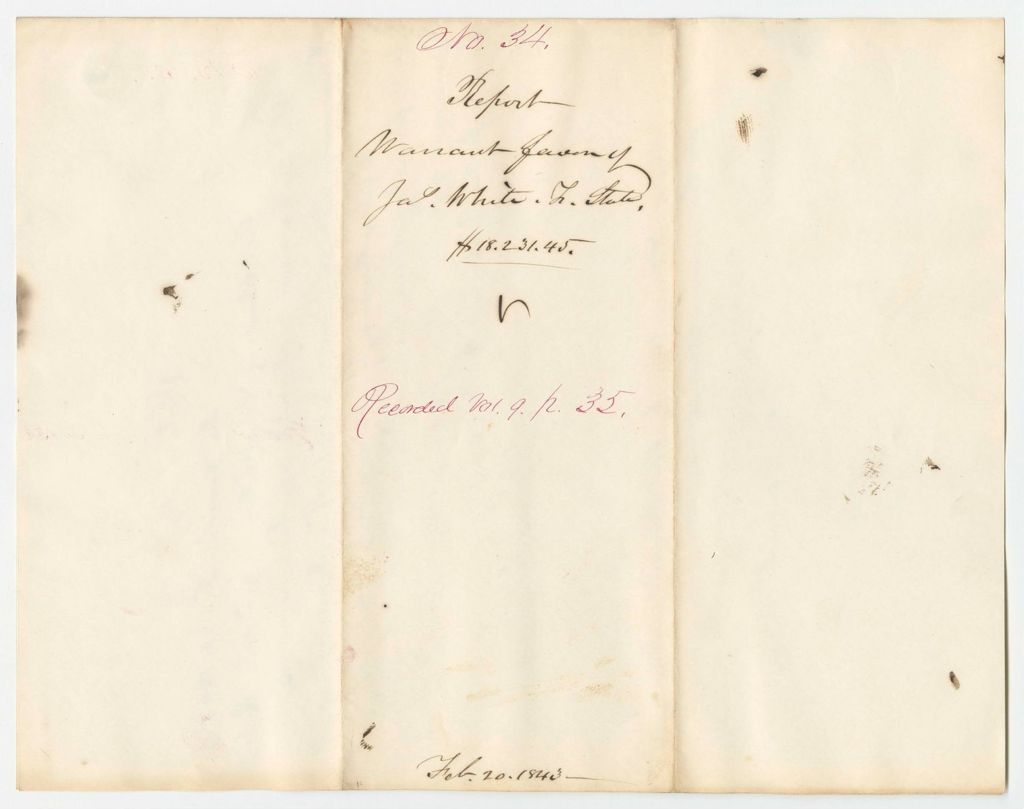 No. 34.
Report
Warrant favor of
Jas. White. Tr. State.
$18.231.45.
Recorded Vol. 9. p. 35.
Feb. 20. 1843